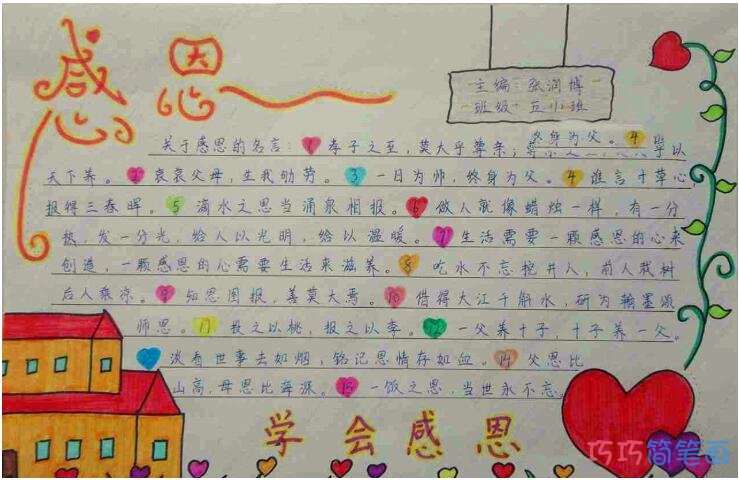 感恩
主编:张润博
班级 五小班
关于感恩的名言:1 孝子之至,莫大乎尊亲;
终身为父。4 以
天下养。2 哀哀父母,生我劬劳。3 一日为师,终身为父。4 谁言寸草心,
报得三春晖。5 滴水之恩当涌泉相报。6 做人就像蜡烛一样,有一分
热,发一分光,给人以光明,给以温暖。7 生活需要一颗感恩的心来
创造,一颗感恩的心需要生活来滋养。8 吃水不忘挖井人,前人栽树
后人乘凉。9 知恩图报,善莫大焉。10 借得大江千斛水,研为翰墨颂
师恩。11 投之以桃,报之以李。12 一父养十子,十子养一父。
13 淡看世事去如烟,铭记恩情存如血。14 父恩比
山高,母恩比海深。15 一饭之恩,当世永不忘。
学会感恩
巧巧简笔画